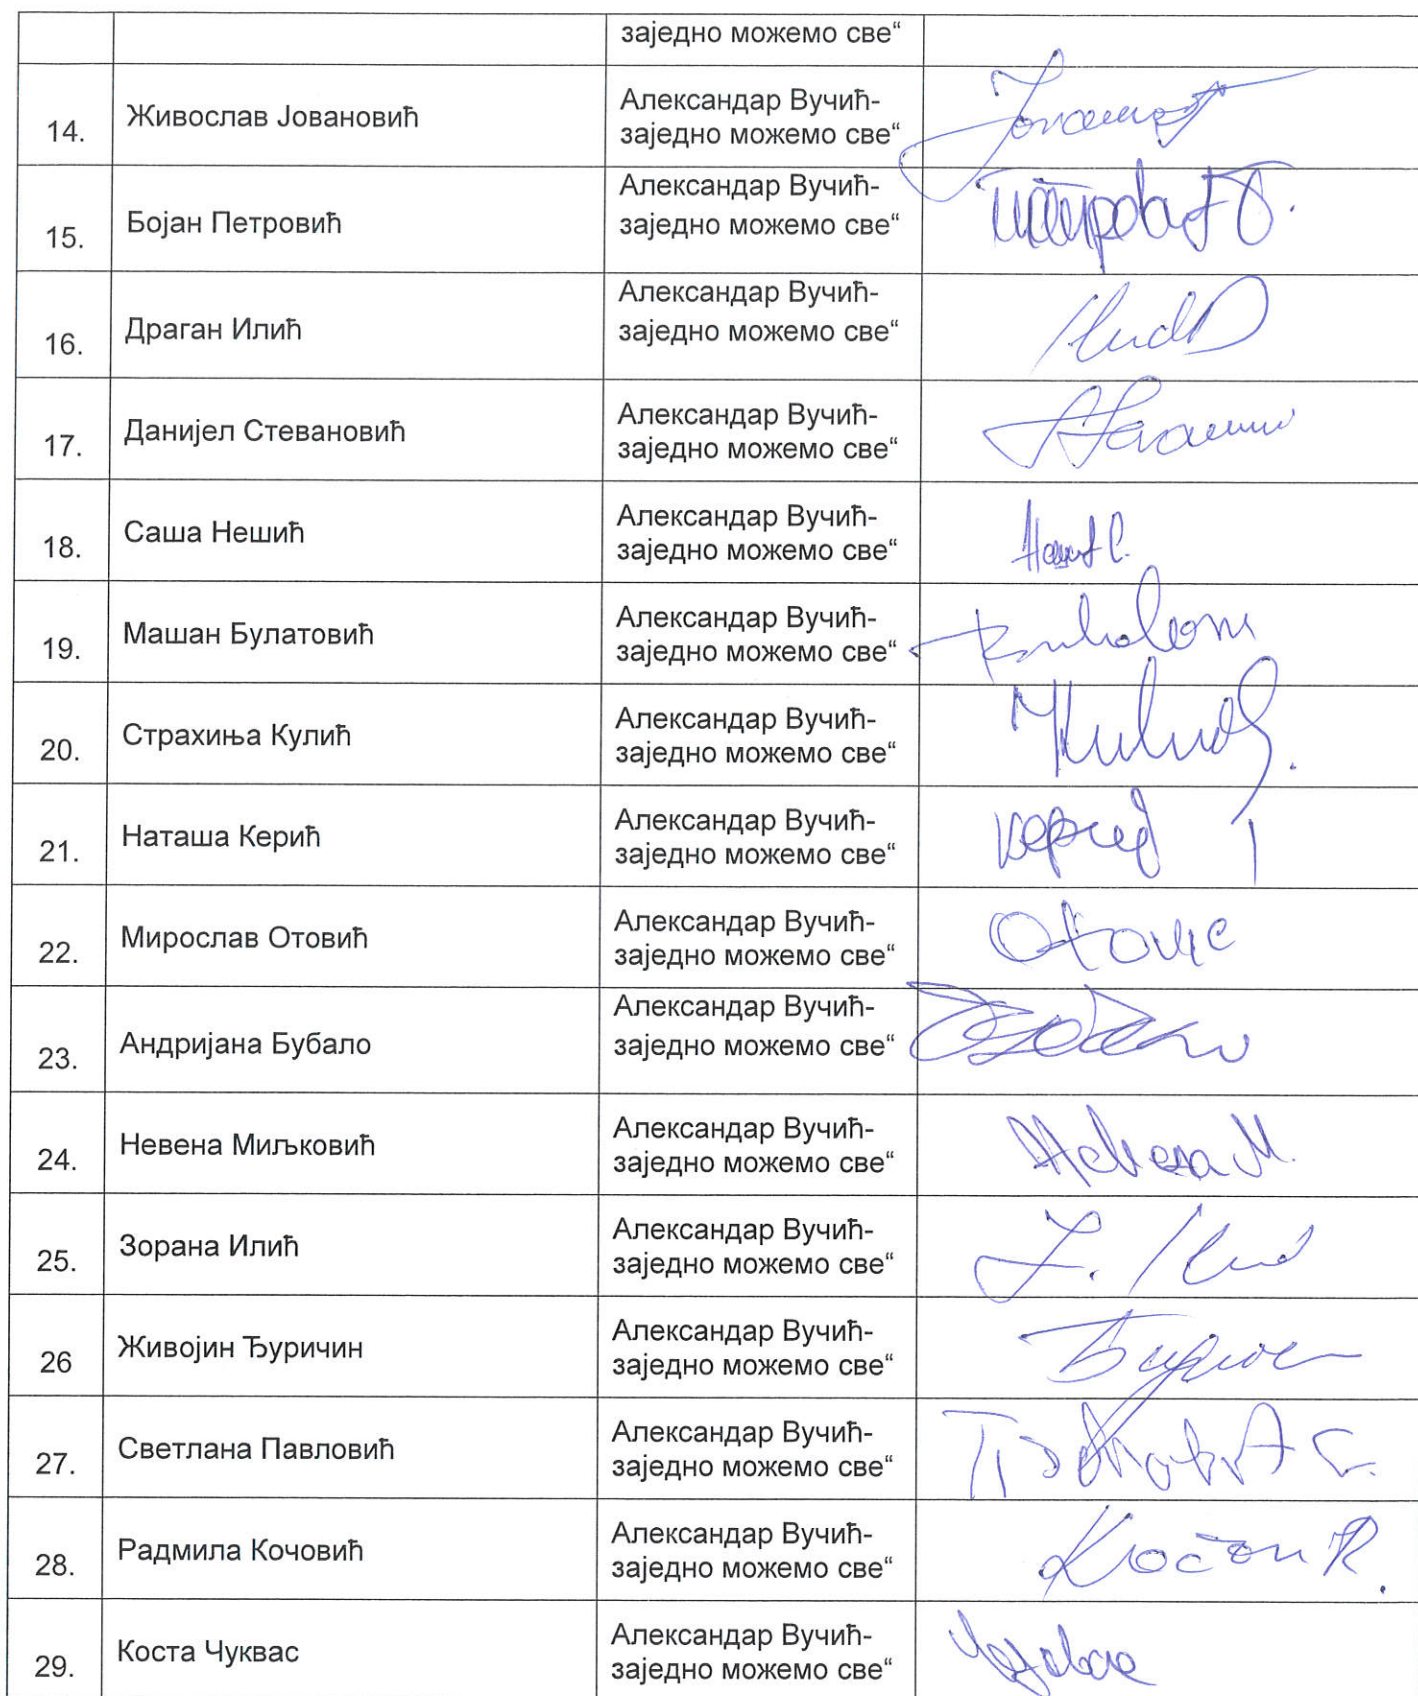 заједно можемо све“
14.
Живослав Јовановић
Александар Вучић-
заједно можемо све“
15.
Бојан Петровић
Александар Вучић-
заједно можемо све“
16.
Драган Илић
Александар Вучић-
заједно можемо све“
17.
Данијел Стевановић
Александар Вучић-
заједно можемо све“
18.
Саша Нешић
Александар Вучић-
заједно можемо све“
19.
Машан Булатовић
Александар Вучић-
заједно можемо све“
20.
Страхиња Кулић
Александар Вучић-
заједно можемо све“
21.
Наташа Керић
Александар Вучић-
заједно можемо све“
22.
Мирослав Отовић
Александар Вучић-
заједно можемо све“
23.
Андријана Бубало
Александар Вучић-
заједно можемо све“
24.
Невена Миљковић
Александар Вучић-
заједно можемо све“
25.
Зорана Илић
Александар Вучић-
заједно можемо све“
26
Живојин Ђуричин
Александар Вучић-
заједно можемо све“
27.
Светлана Павловић
Александар Вучић-
заједно можемо све“
28.
Радмила Кочовић
Александар Вучић-
заједно можемо све“
29.
Коста Чуквас
Александар Вучић-
заједно можемо све“